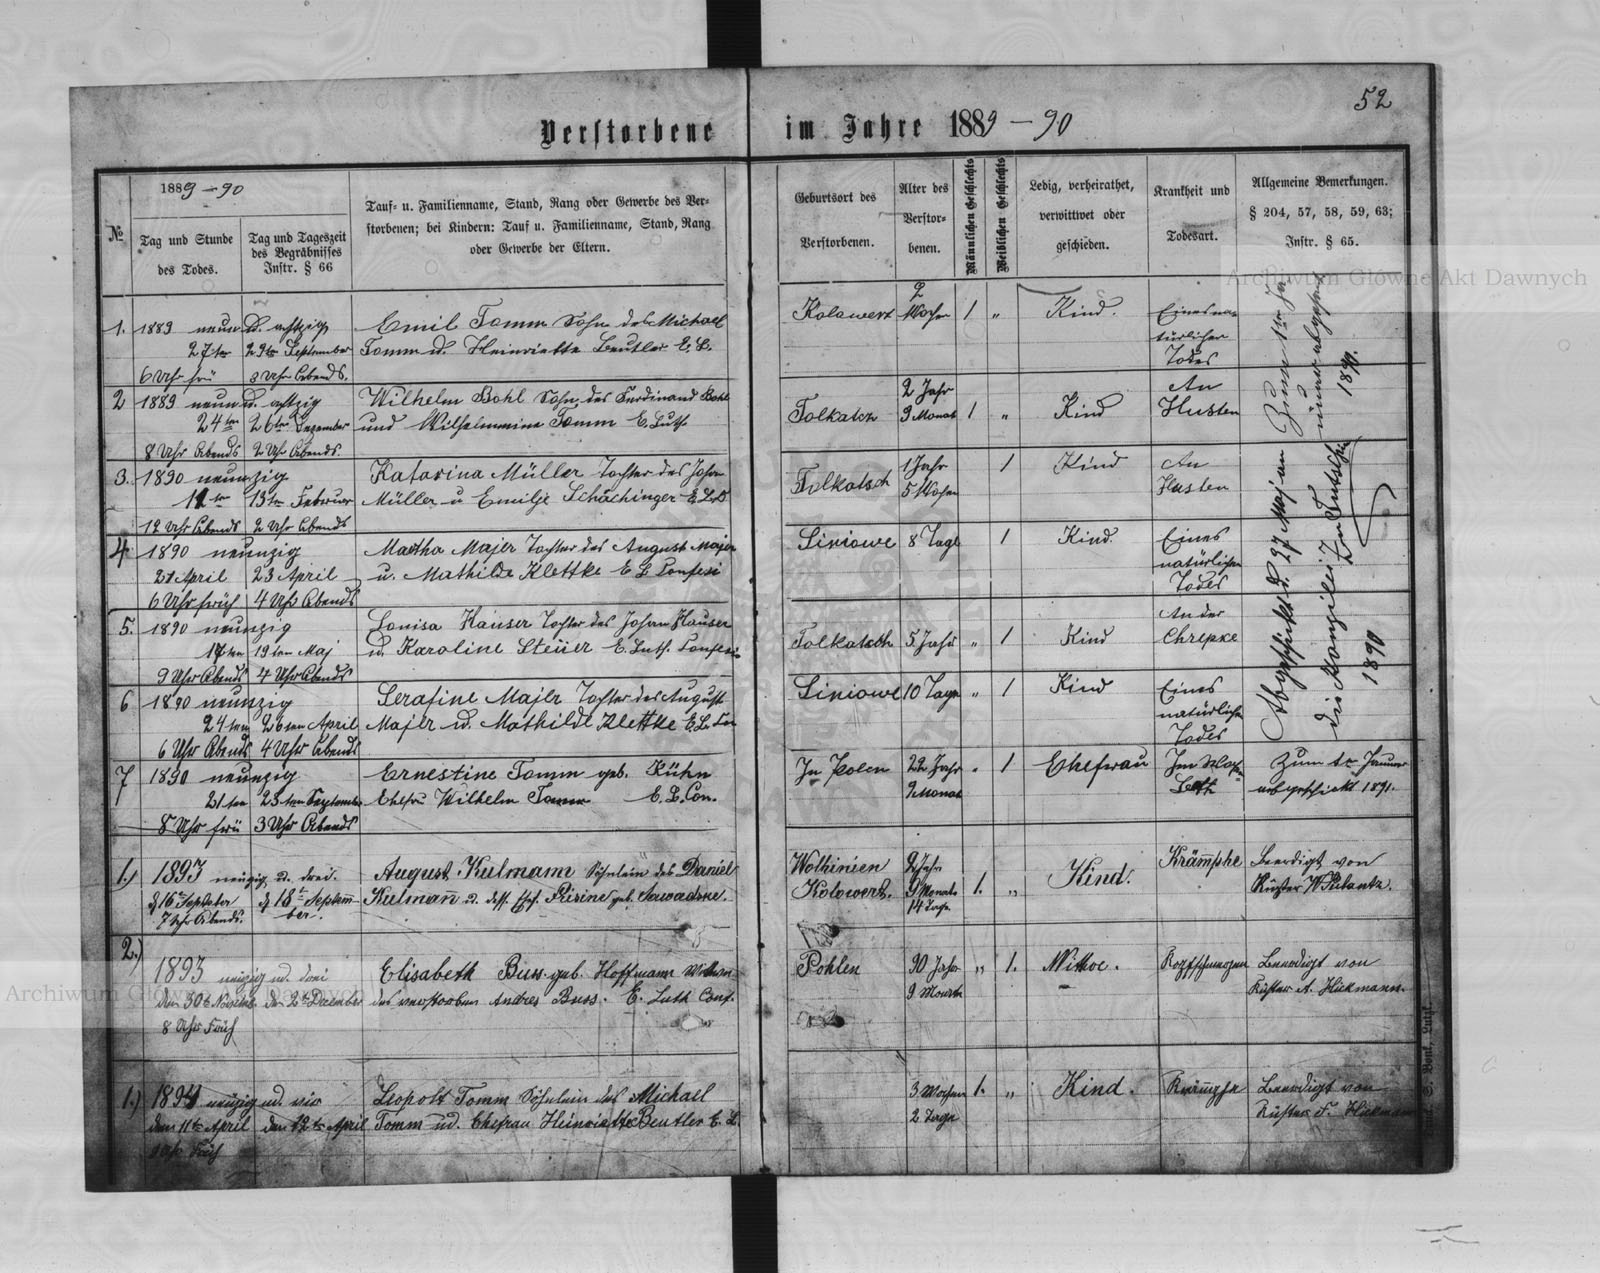 52
Verstorbene im Jahre 1889-90
1889-90
№
Tag und Stunde
des Todes.
Tag und Tageszeit
des Begräbnisses
Instr. § 66
Tauf- u. Familienname, Stand, Rang oder Gewerbe des Ver-
storbenen; bei Kindern: Tauf u. Familienname, Stand, Rang
oder Gewerbe der Eltern.
Geburtsort des
Verstorbenen.
Alter des
Verstor-
benen.
Männlichen Geschlechts
Weiblichen Geschlechts
Ledig, verheirathet,
verwittwet oder
geschieden.
Krankheit und
Todesart.
Allgemeine Bemerkungen.
§ 204, 57, 58, 59, 63;
Instr. § 65.
Archiwum Główne Akt Dawnych
1. 1889 neun u. achtzig
27ten 29ten September
6 Uhr frü 3 Uhr Abends.
Emil Tomm Sohn des Michael
Tomm u. Heinriette Beutler E. L.
Kolowert 2 Wochen 1 " Kind.
Eines na-
türlichen
Todes
2 1889 neun u. achtzig
24ten 26ten Dezember
8 Uhr Abends 2 Uhr Abends.
Wilhelm Bohl Sohn des Ferdinand Bohl
und Wilhelmmine Tomm E. Luth.
Tolkatch 2 Jahr
9 Monat 1 " Kind
An
Husten
3. 1890 neunzig
12ten 13ten Februar
12 Uhr Abends 2 Uhr Abends
Katarina Müller Tochter des Johan
Müller u Emilje Schächinger E. L.
Tolkatsch 1 Jahr
5 Wochen 1 Kind
An
Husten
4. 1890 neunzig
21 April 23 April
6 Uhr früh 4 Uhr Abends
Martha Majer Tochter des August Majer
u. Mathilde Klettke E L Confesi
Siniowe 8 Tage 1 Kind
Eines
natürlichen
Todes
5. 1890 neunzig
17ten 19ten Maj
9 Uhr Abends 4 Uhr Abends
Louisa Hauser Tochter des Johan Hauser
u. Karoline Steüer E. Luth. Confesi
Tolkatsch 5 Jahr " 1 Kind
An der
Chrepke
6 1890 neunzig
24ten 26ten April
6 Uhr Abends 4 Uhr Abends
Serafine Majer Tochter des August
Majer u. Mathilde Klettke E. L. Con
Siniowe 10 Tage " 1 Kind
Eines
natürlichen
Todes
7 1890 neunzig
21ten 23ten September
8 Uhr frü 3 Uhr Abends
Ernestine Tomm geb. Kühn
Ehefr Wilhelm Tomm E. L. Con.
In Polen 22 Jahr
9 Monat " 1 Ehefrau
Zum 1ten Januar
abgeschickt 1891.
Zum 1ten
1890.
Abgeschickt d. 27 Maj an
die Konzilei
1890
1.) 1893 neuzig u. drei.
d 16 September d 18t Septem-
7 Uhr Abends. ber.
August Kulmann Söhnlein des Daniel
Kulmann u. dess. Ehef. Rosine geb. Sawadzke.
Wolhinien
Kolowert. 2 Jahr
9 Monate
14 Tage 1. " Kind.
Krämphe
Beerdigt von
Küster W. Rilantz.
2.) 1893 neuzig ud. drei
den 30t November den 2t December
8 Uhr Früh
Elisabeth Buss geb. Hoffmann Wittwe
des verstorben Andres Buss. E. Luth Conf.
Pohlen 90 Jahr
9 Monate " 1. Wittwe.
Beerdigt von
Küster A. Hükmann.
Archiwum Główne Akt Dawnych
1.) 1894 neuzig ud. vier
den 11te April den 12te April
Uhr Früh
Leopolt Tomm Söhnlein des Michael
Tomm ud. Ehefrau Heinriette Beutler E. L.
3 Wochen
2 Tage 1. " Kind.
Krämphe
Beerdigt von
Küster F. Hükmann